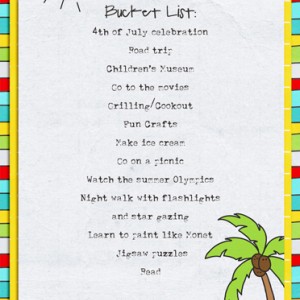 Bucket List:
4th of July celebration
Road trip
Children's Museum
Go to the movies
Grilling/Cookout
Fun Crafts
Make ice cream
Go on a picnic
Watch the summer Olympics
Night walk with flashlights
and star gazing
Learn to paint like Monet
Jigsaw puzzles
Read